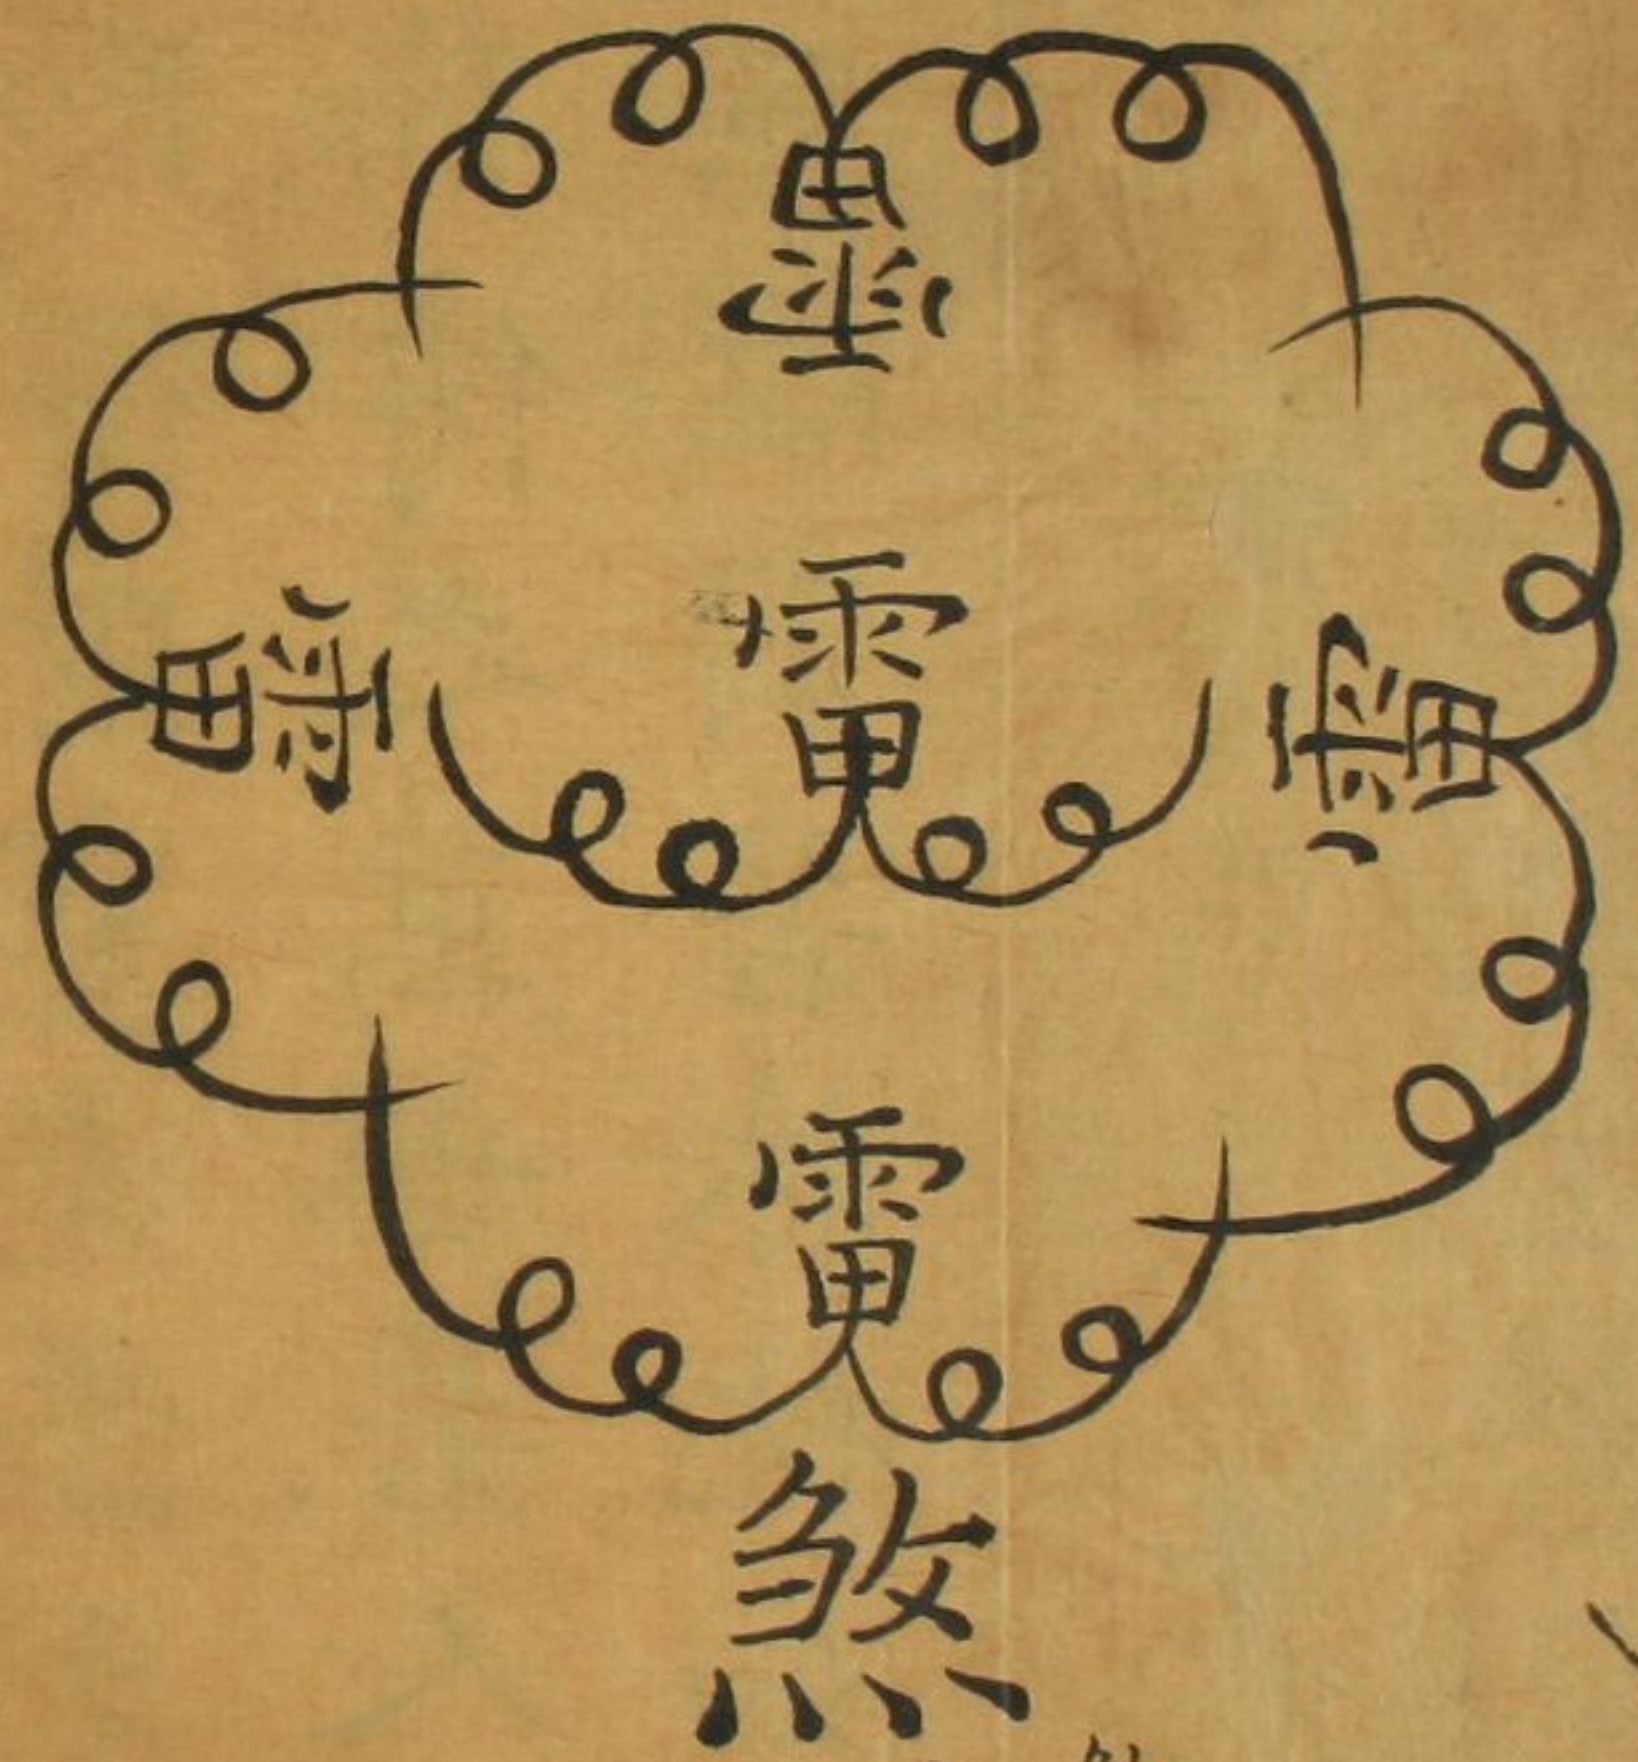 雷
雷 雷 雷
雷
煞